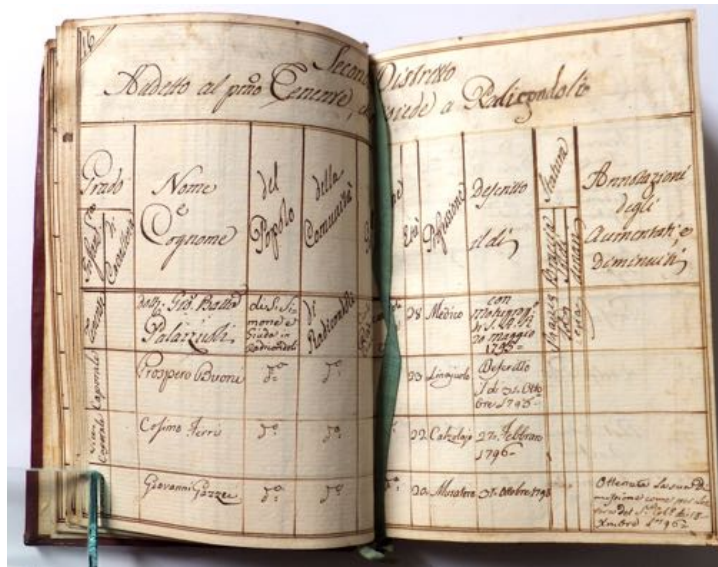 16
Secon Distretto
Addetto al pmo Tenente, ch risiede a Radicondoli
Grado
di Cavalleria
Nome
e
Cognome
del
Popolo
della
Comunità
Età
Professione
Descritto
il dì
Statura
Braccia
Soldi
Annotazioni
degli
Aumentati e
Diminuiti
Tenente
dott. Gio. Batta
de S. Si-
mone e
Giuda in
Radicondoli
di
Radicondoli
28 Medico
con
di S.A.R.
20 maggio
1795
Caporale
Prospero Buoni
do.
do.
33 Linajuolo
Descritto
dì 31. Otto
bre 1795
Vice
Caporale
Cosimo Ferri
do.
do.
22 Calzolajo
27. Febbraio
1796
Giovanni Gazzei
do.
do.
20 Muratore
31. Ottobre 1795
Ottenuta la sua Di
missione come per let
tera del
Xmbre 1796